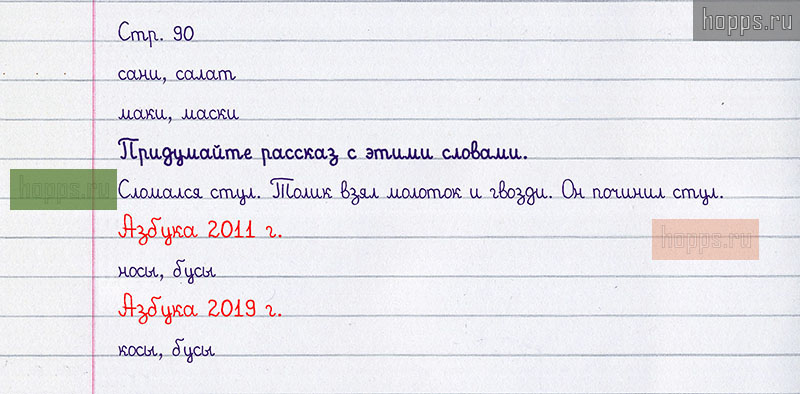 hopps.ru
Стр. 90
сани, салат
маки, маски
Придумайте рассказ с этими словами.
hopps.ru
Сломался стул. Толик взял молоток и гвозди. Он починил стул.
Азбука 2011 г.
hopps.ru
носы, бусы
Азбука 2019 г.
косы, бусы